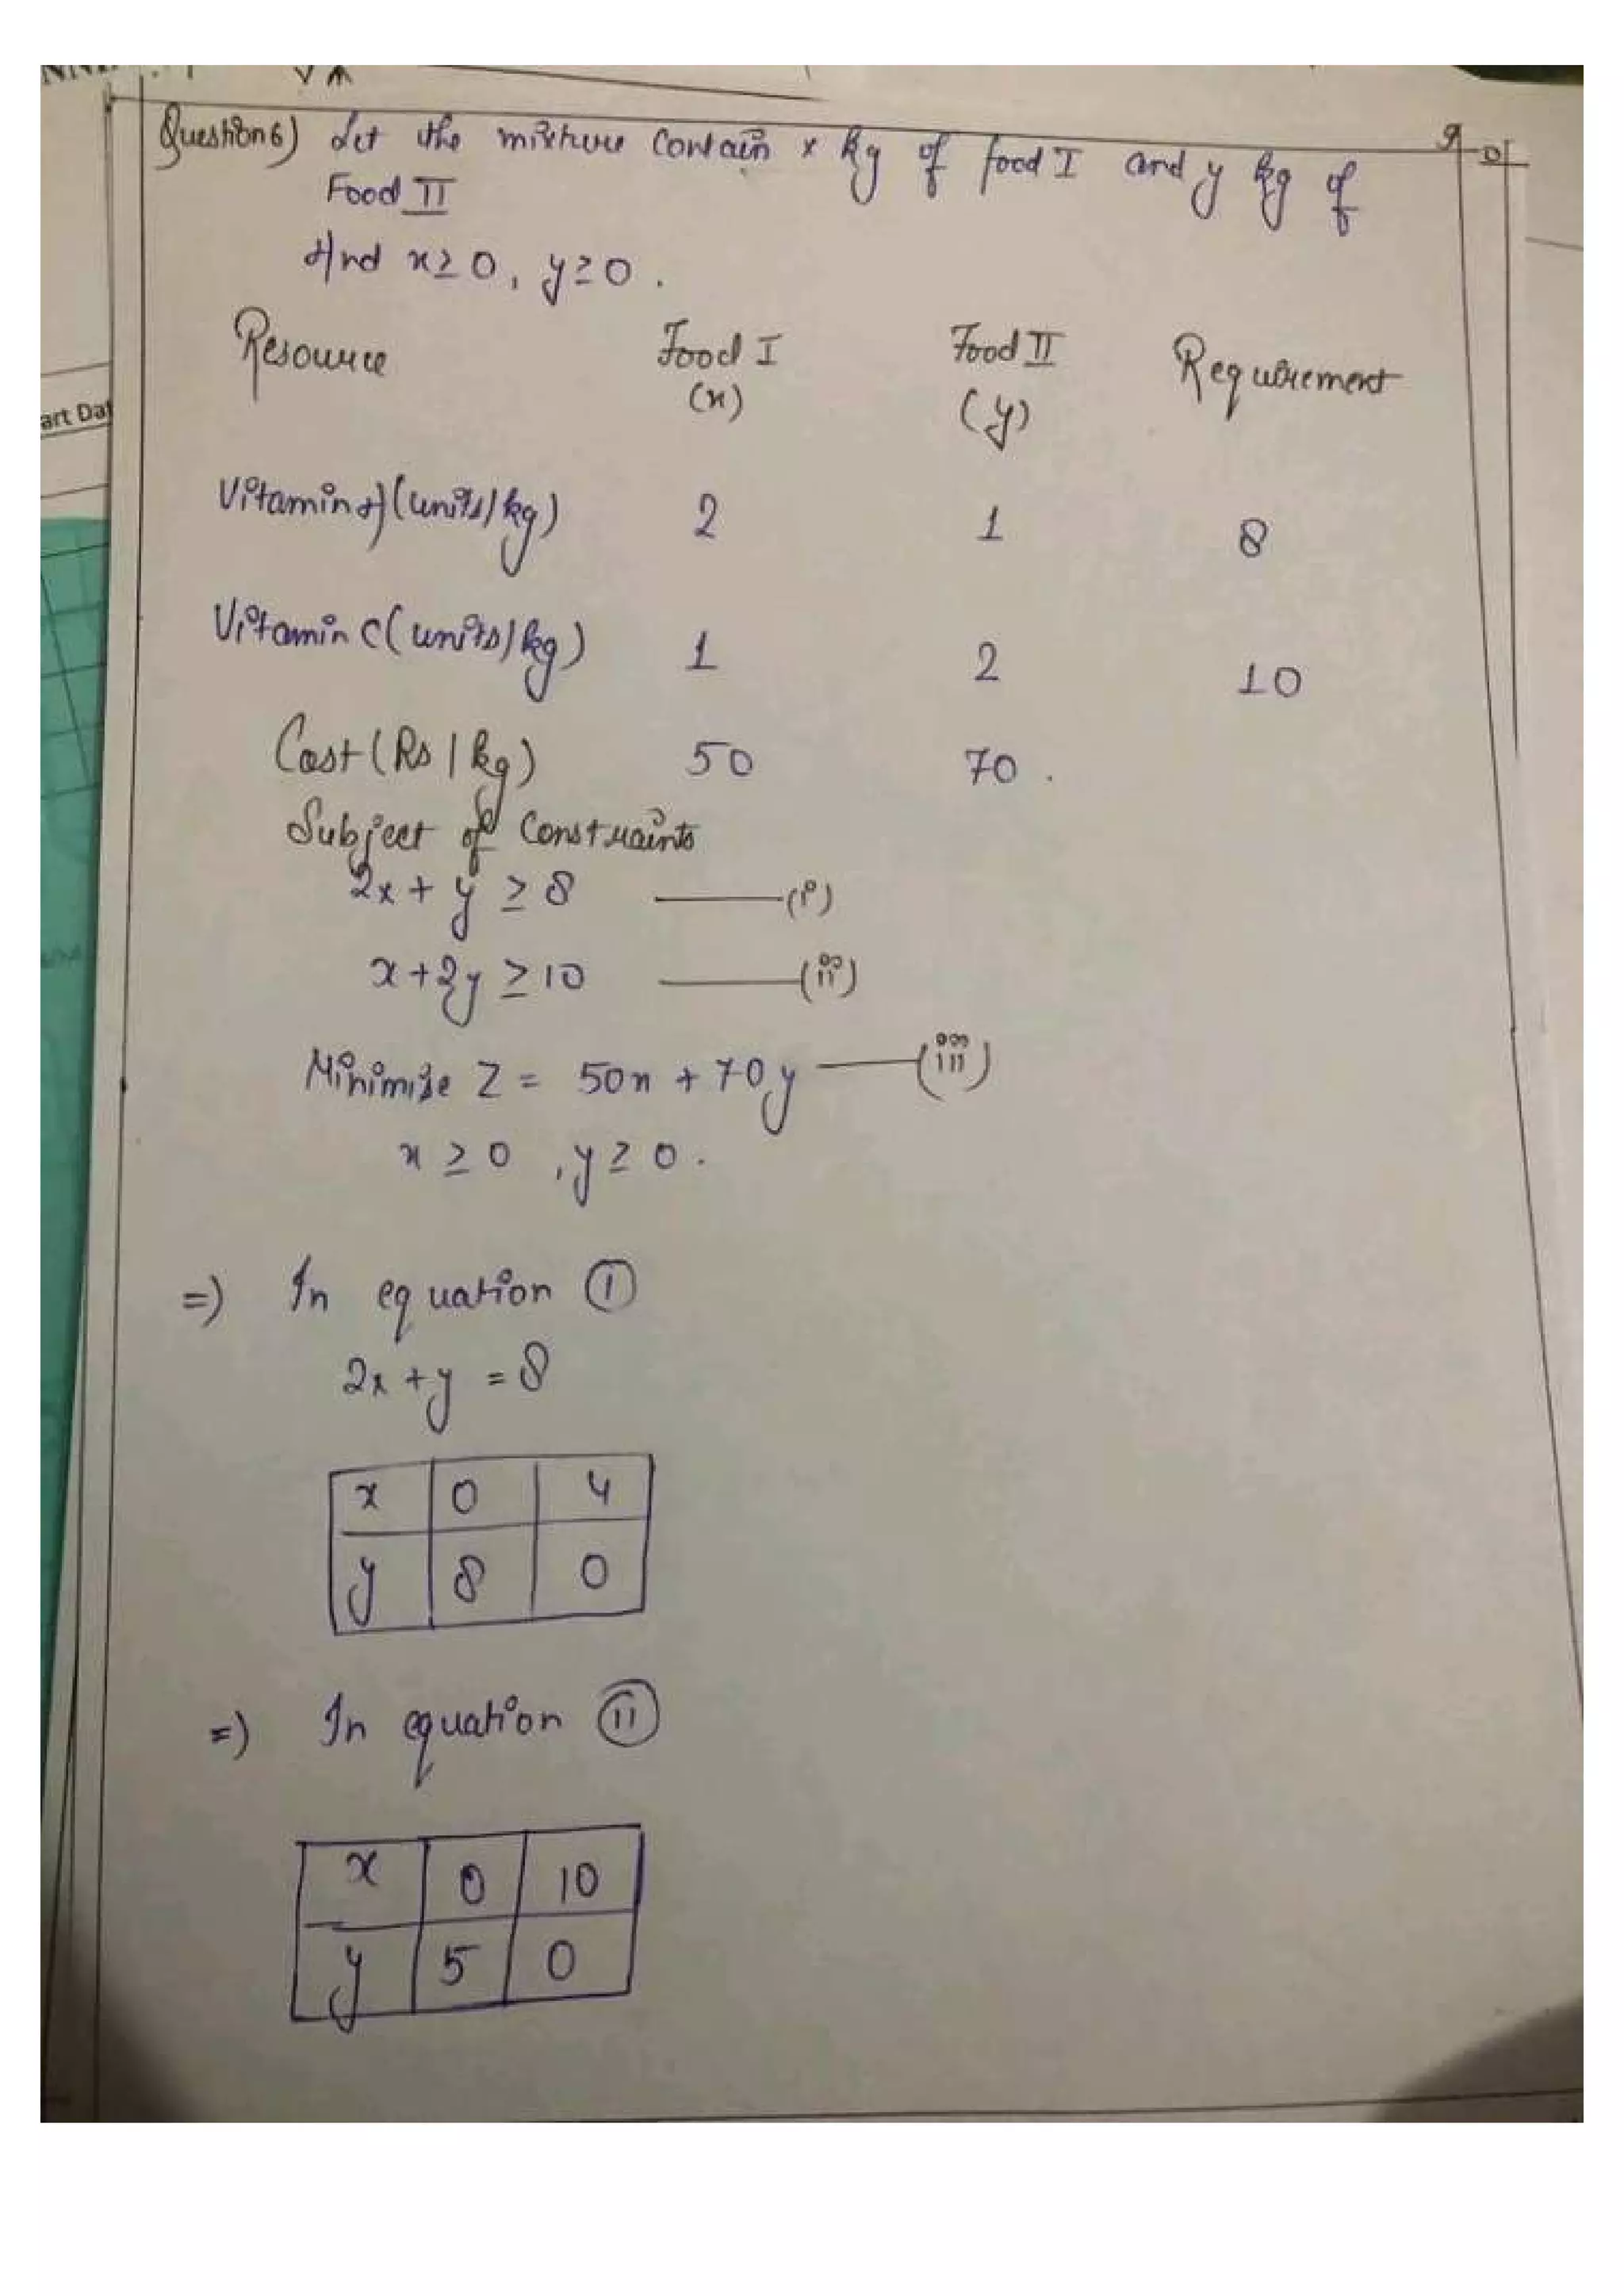 Question 6) Let the mixture contain x kg of food I and y kg of
Food II
And x ≥ 0, y ≥ 0.
Resource Food I Food II Requirement
(x) (y)
Vitamin A (units/kg) 2 1 8
Vitamin C (units/kg) 1 2 10
Cost (Rs/kg) 50 70.
Subject of Constraints
2x + y ≥ 8 —(i)
x + 2y ≥ 10 —(ii)
Minimize Z = 50x + 70y —(iii)
x ≥ 0, y ≥ 0.
=) In equation (I)
2x + y = 8
x 0 4
y 8 0
=) In equation (II)
x 0 10
y 5 0
art Dat